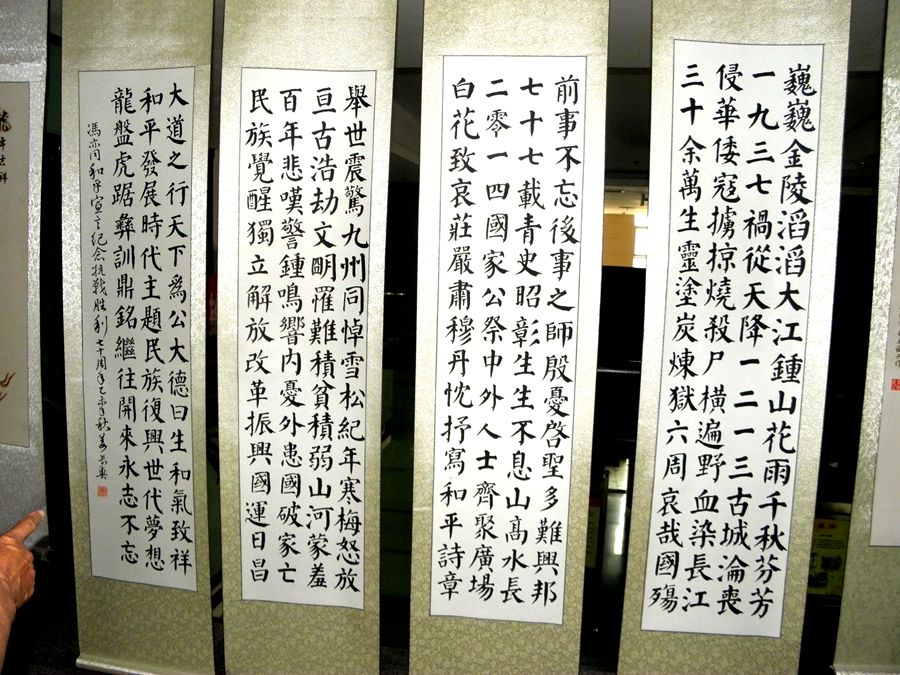 巍巍金陵滔滔大江鍾山花雨千秋芬芳
一九三七禍從天降一二一三古城淪喪
侵華倭寇擄掠燒殺尸橫遍野血染長江
三十余萬生靈塗炭煉獄六周哀哉國殤
前事不忘後事之師殷憂啓聖多難興邦
七十七載青史昭彰生生不息山高水長
二零一四國家公祭中外人士齊聚廣場
白花致哀莊嚴肅穆丹忱抒寫和平詩章
舉世震驚九州同悼雪松紀年寒梅怒放
亘古浩劫文明罹難積貧積弱山河蒙羞
百年悲嘆警鍾鳴響内憂外患國破家亡
民族覺醒獨立解放改革振興國運日昌
大道之行天下爲公大德曰生和氣致祥
和平發展時代主題民族復興世代夢想
龍盤虎踞彝訓鼎銘繼往開來永志不忘
馮亦同和平宣言紀念抗戰胜利七十周年乙未年秋